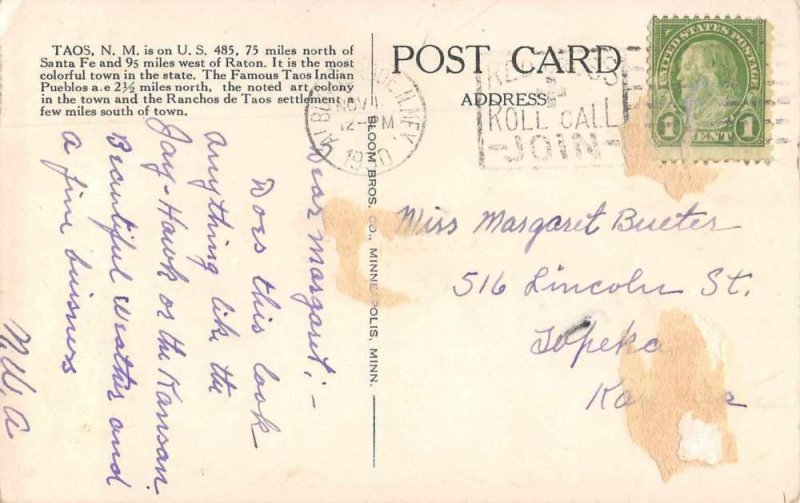 TAOS, N. M. is on U. S. 485, 75 miles north of
Santa Fe and 95 miles west of Raton. It is the most
colorful town in the state. The Famous Taos Indian
Pueblos a.e 2½ miles north, the noted art colony
in the town and the Ranchos de Taos settlement a
few miles south of town.
POST CARD
ADDRESS
BLOOM BROS. CO., MINNEAPOLIS, MINN.
NOV
12-PM
1930
ROLL CALL
-JOIN-
UNITED STATES POSTAGE
1 CENT 1
Dear Margaret;-
Does this look
anything like the
Jay-Hawk or the Kansan.
Beautiful Weather and
a fine buisness
M.W.A
Miss Margaret Bueter
516 Lincoln St.
Topeka